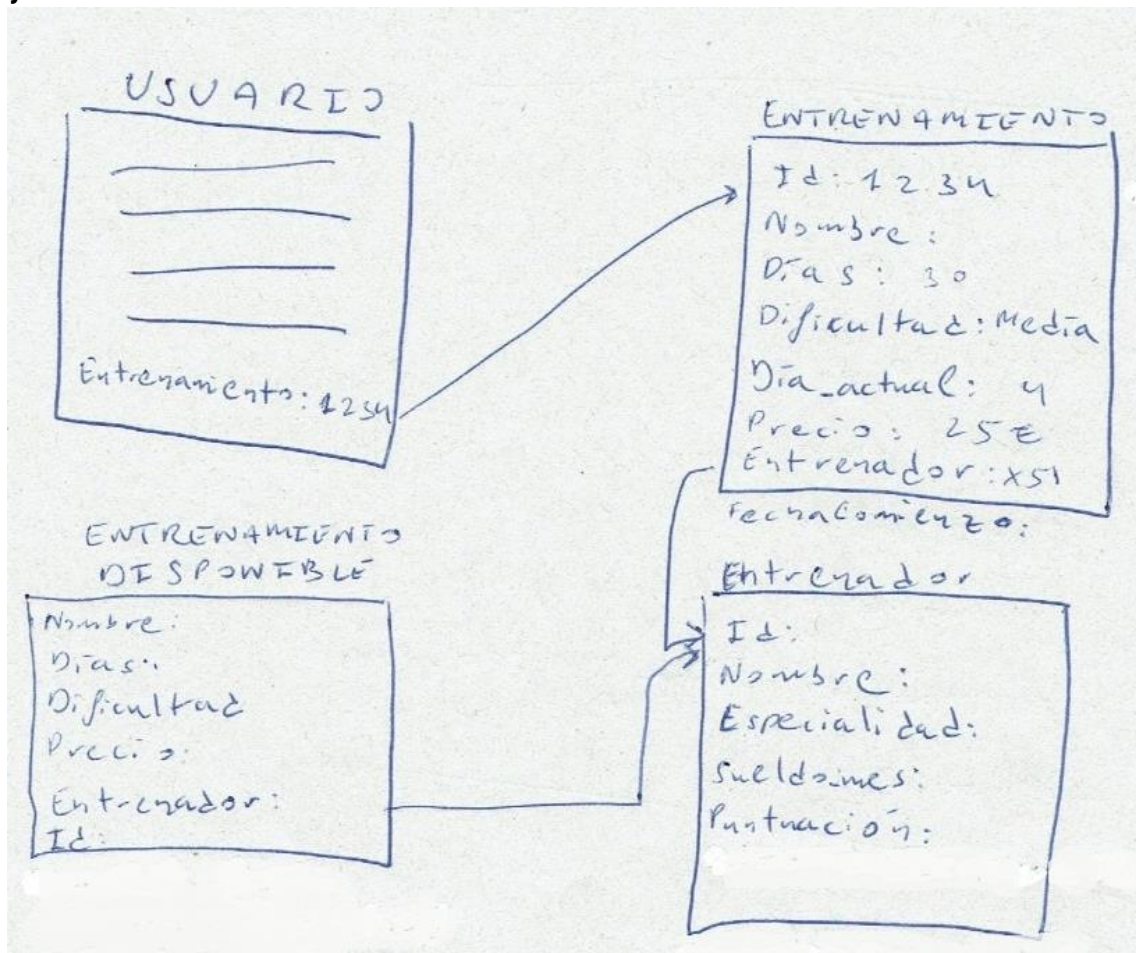 USUARIO
Entrenamiento: 1234
ENTRENAMIENTO
Id: 1234
Nombre:
Días: 30
Dificultad: Media
Día_actual: 4
Precio: 25€
Entrenador: X51
FechaComienzo:
ENTRENAMIENTO
DISPONIBLE
Nombre:
Días:
Dificultad
Precio:
Entrenador:
Id:
Entrenador
Id:
Nombre:
Especialidad:
Sueldo_mes:
Puntuación: